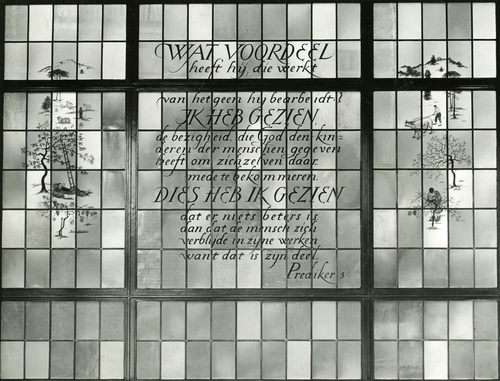 WAT VOORDEEL
heeft hij, die werkt
van hetgeen hij bearbeidt?
IK HEB GEZIEN
de bezigheid, die God den kin=
deren der menschen gegeven
heeft om zichzelven daar
mede te bekommeren.
DIES HEB IK GEZIEN
dat er niets beters is
dan dat de mensch zich
verblijde in zijne werken,
want dat is zijn deel.
Prediker 3